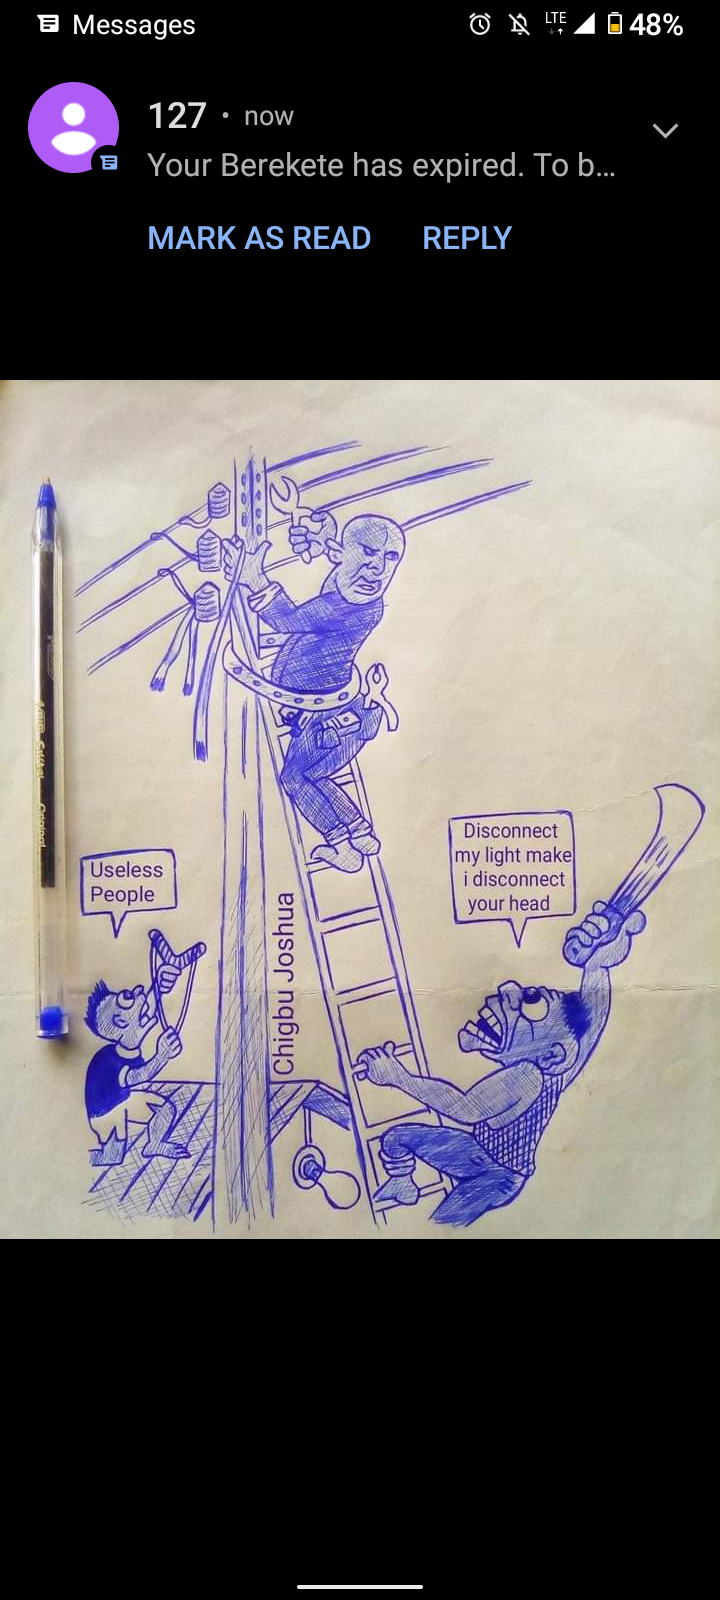 Messages
LTE
48%
127 • now
Your Berekete has expired. To b...
MARK AS READ
REPLY
Useless
People
Disconnect
my light make
i disconnect
your head
Chigbu Joshua